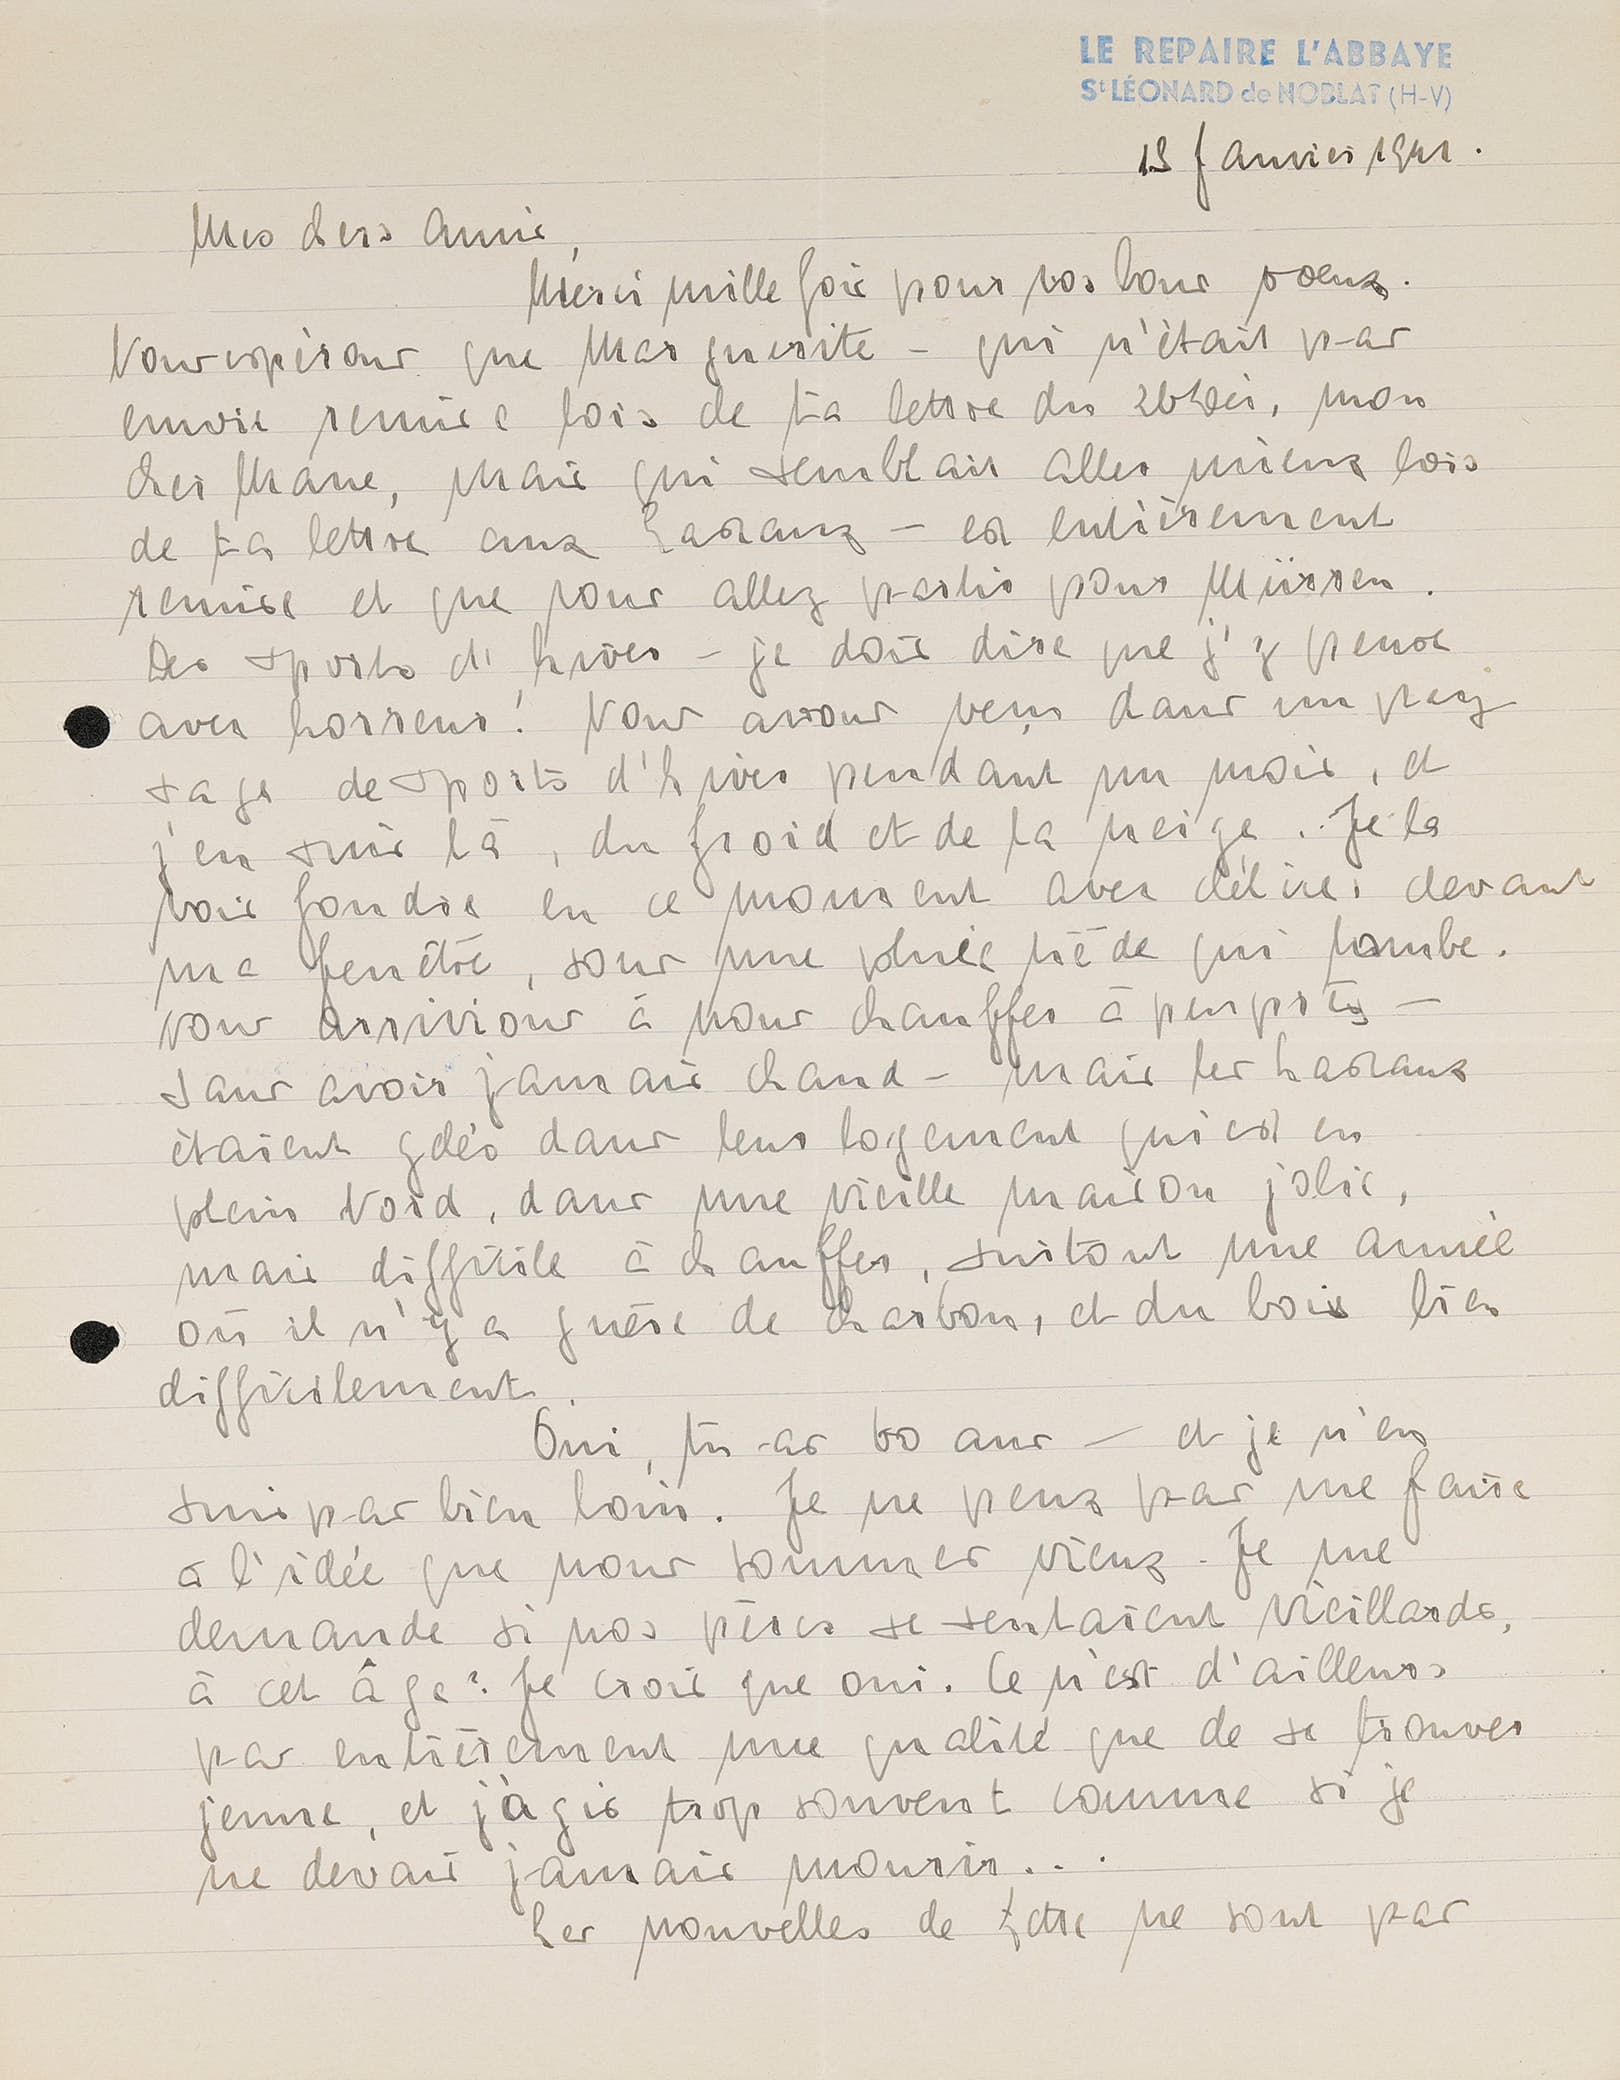 LE REPAIRE L'ABBAYE
St LÉONARD de NOBLAT (H-V)
13 Janvier 1941.
Mes chers amis,
Merci mille fois pour vos bons voeux.
Nous espérons que Marguerite – qui n'était pas
encore remise lors de ta lettre du 26 Déc, mon
cher Mane, mais qui semblait aller mieux lors
de ta lettre aux Hadranx – est entièrement
remise et que vous allez partir pour Mürren.
Des sports d'hiver – je dois dire que j'y pense
avec horreur! Nous avons vécu dans un pay
sage de sports d'hiver pendant un mois, et
j'en suis là, du froid et de la neige. Je la
vois fondre en ce moment avec délices devant
ma fenêtre, sous une pluie tiède qui tombe.
Nous arrivions à nous chauffer à peu près –
sans avoir jamais chaud – mais les Hadranx
étaient gelés dans leur logement qui est en
plein Nord, dans une vieille maison jolie,
mais difficile à chauffer, surtout une année
où il n'y a guère de charbon, et du bois bien
difficilement.
Oui, tu as 60 ans – et je n'en
suis pas bien loin. Je ne peux pas me faire
à l'idée que nous sommes vieux. Je me
demande si nos pères se sentaient vieillards,
à cet âge? Je crois que oui. Ce n'est d'ailleurs
pas entièrement une qualité que de se trouver
jeune, et j'agis trop souvent comme si je
ne devais jamais mourir...
Les nouvelles de ne sont pas